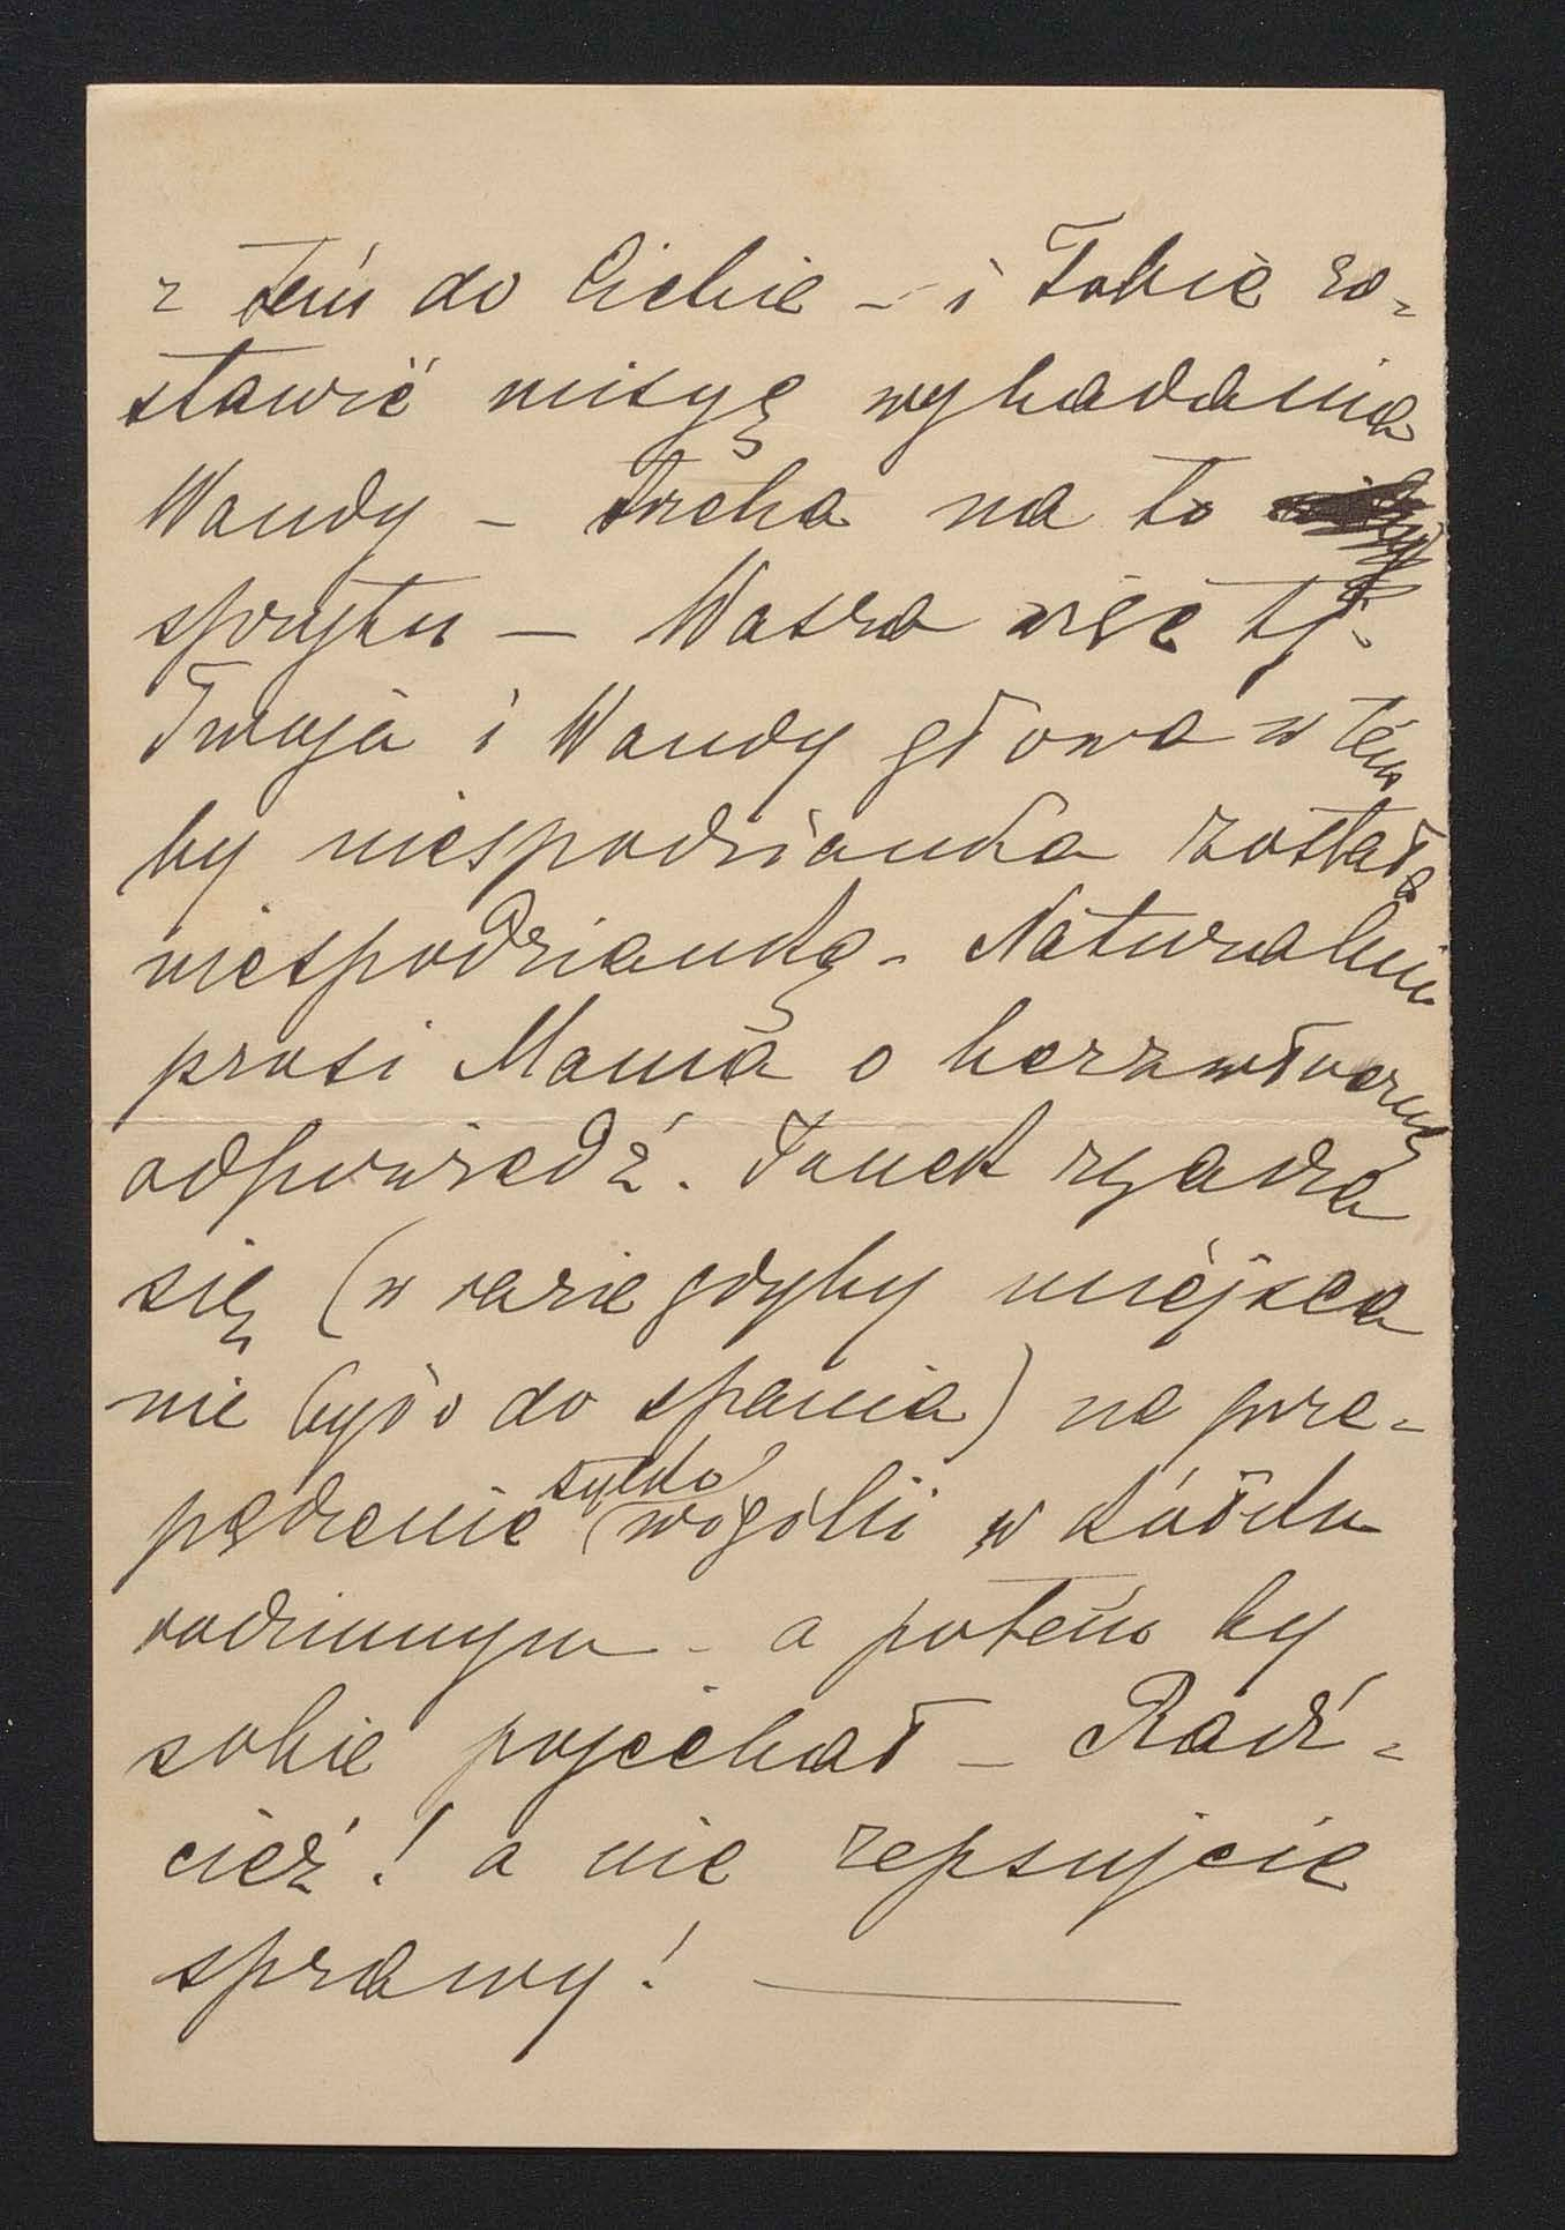 z tem do Ciebie – i Tobie zo=
stawić misyę wybadania
Wandy – trzeba na to
sprytu – Wasza więc tj.
Twoja i Wandy głowa w tem
by niespodzianka została
niespodzianką – Naturalnie
prosi Mama o bezzwłoczną
odpowiedź. Janek zgadza
się (w razie gdyby miejsca
nie było do spania) na prze=
pędzenie tylko wigilii w kółku
rodzinnym – a potem by
sobie pojechał – Radź=
cież! a nie zepsujcie
sprawy! —